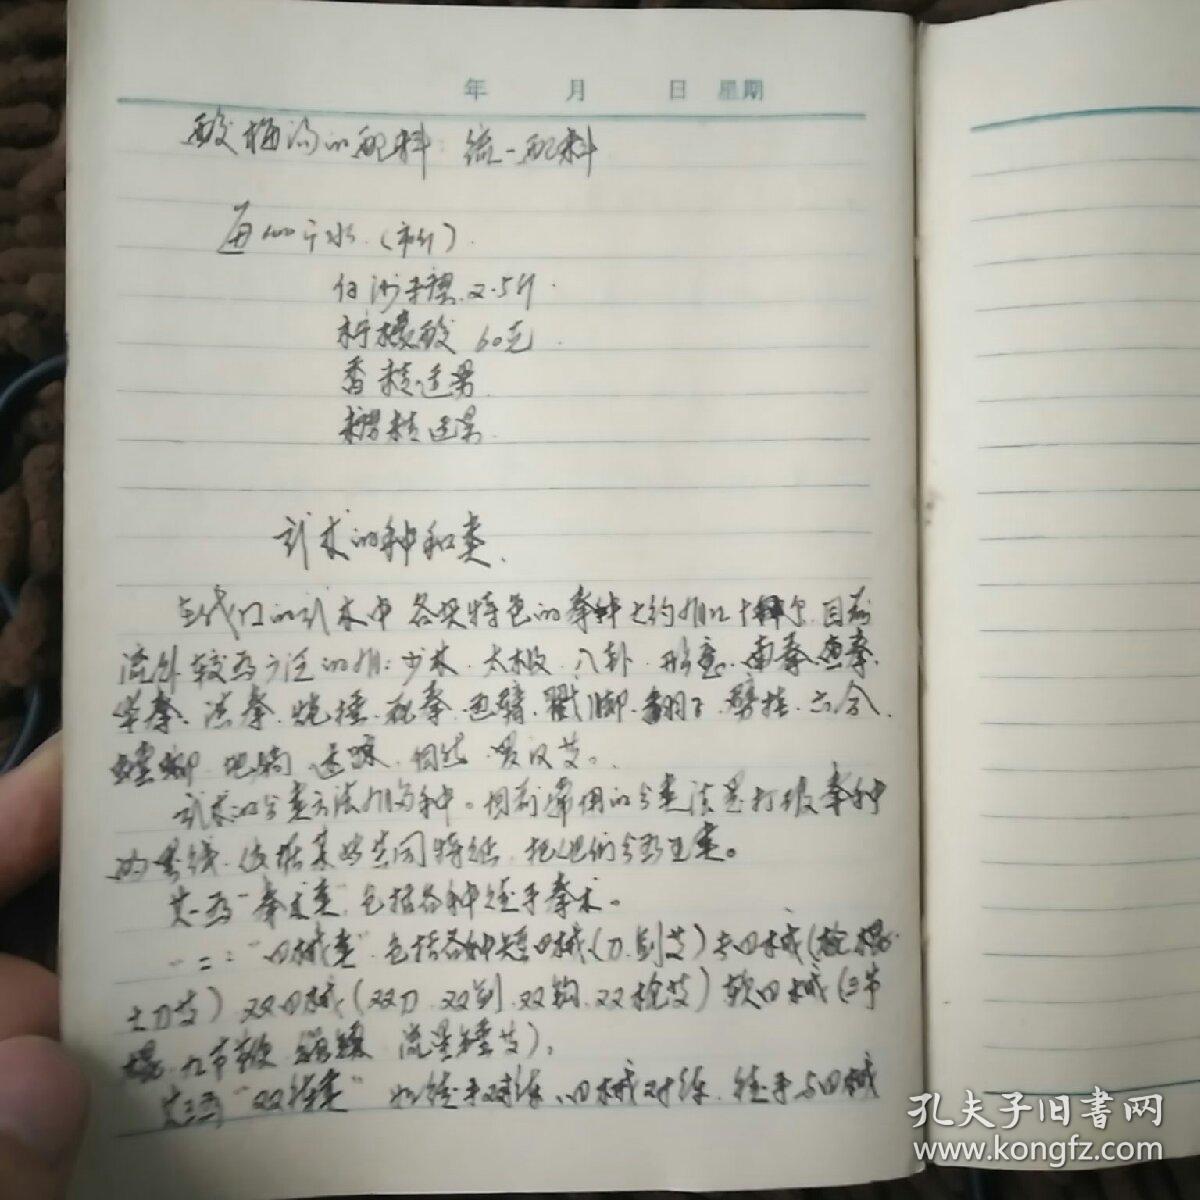 年 月 日 星期
酸梅汤的配料 统一配料
每100斤水.(市斤).
白沙糖 2.5斤.
柠檬酸 60克.
香精适量.
糖精适量.
武术的种和类.
在我们的武术中 各具特色的拳种大约有几十种.目前
流外较为广泛的有:少林.太极.八卦.形意.南拳.
华拳.洪拳.炮捶.花拳.通臂.戳脚.翻子.劈挂.六合.
螳螂. 迷踪. 等.
武术的分类方法有多种。目前常用的分类法是打破拳种
的界线.依据某些共同特征.把他们分为五类。
其一为"拳术类".包括各种徒手拳术。
"二:"口械类".包括各种短口械(刀.剑等)长口械(枪.棍.
大刀等)双口械(双刀.双剑.双钩.双枪等)软口械(三节
棍.九节鞭. 流星锤等).
其三为"对练类" 如徒手对练.口械对练.徒手与口械
孔夫子旧书网
www.kongfz.com